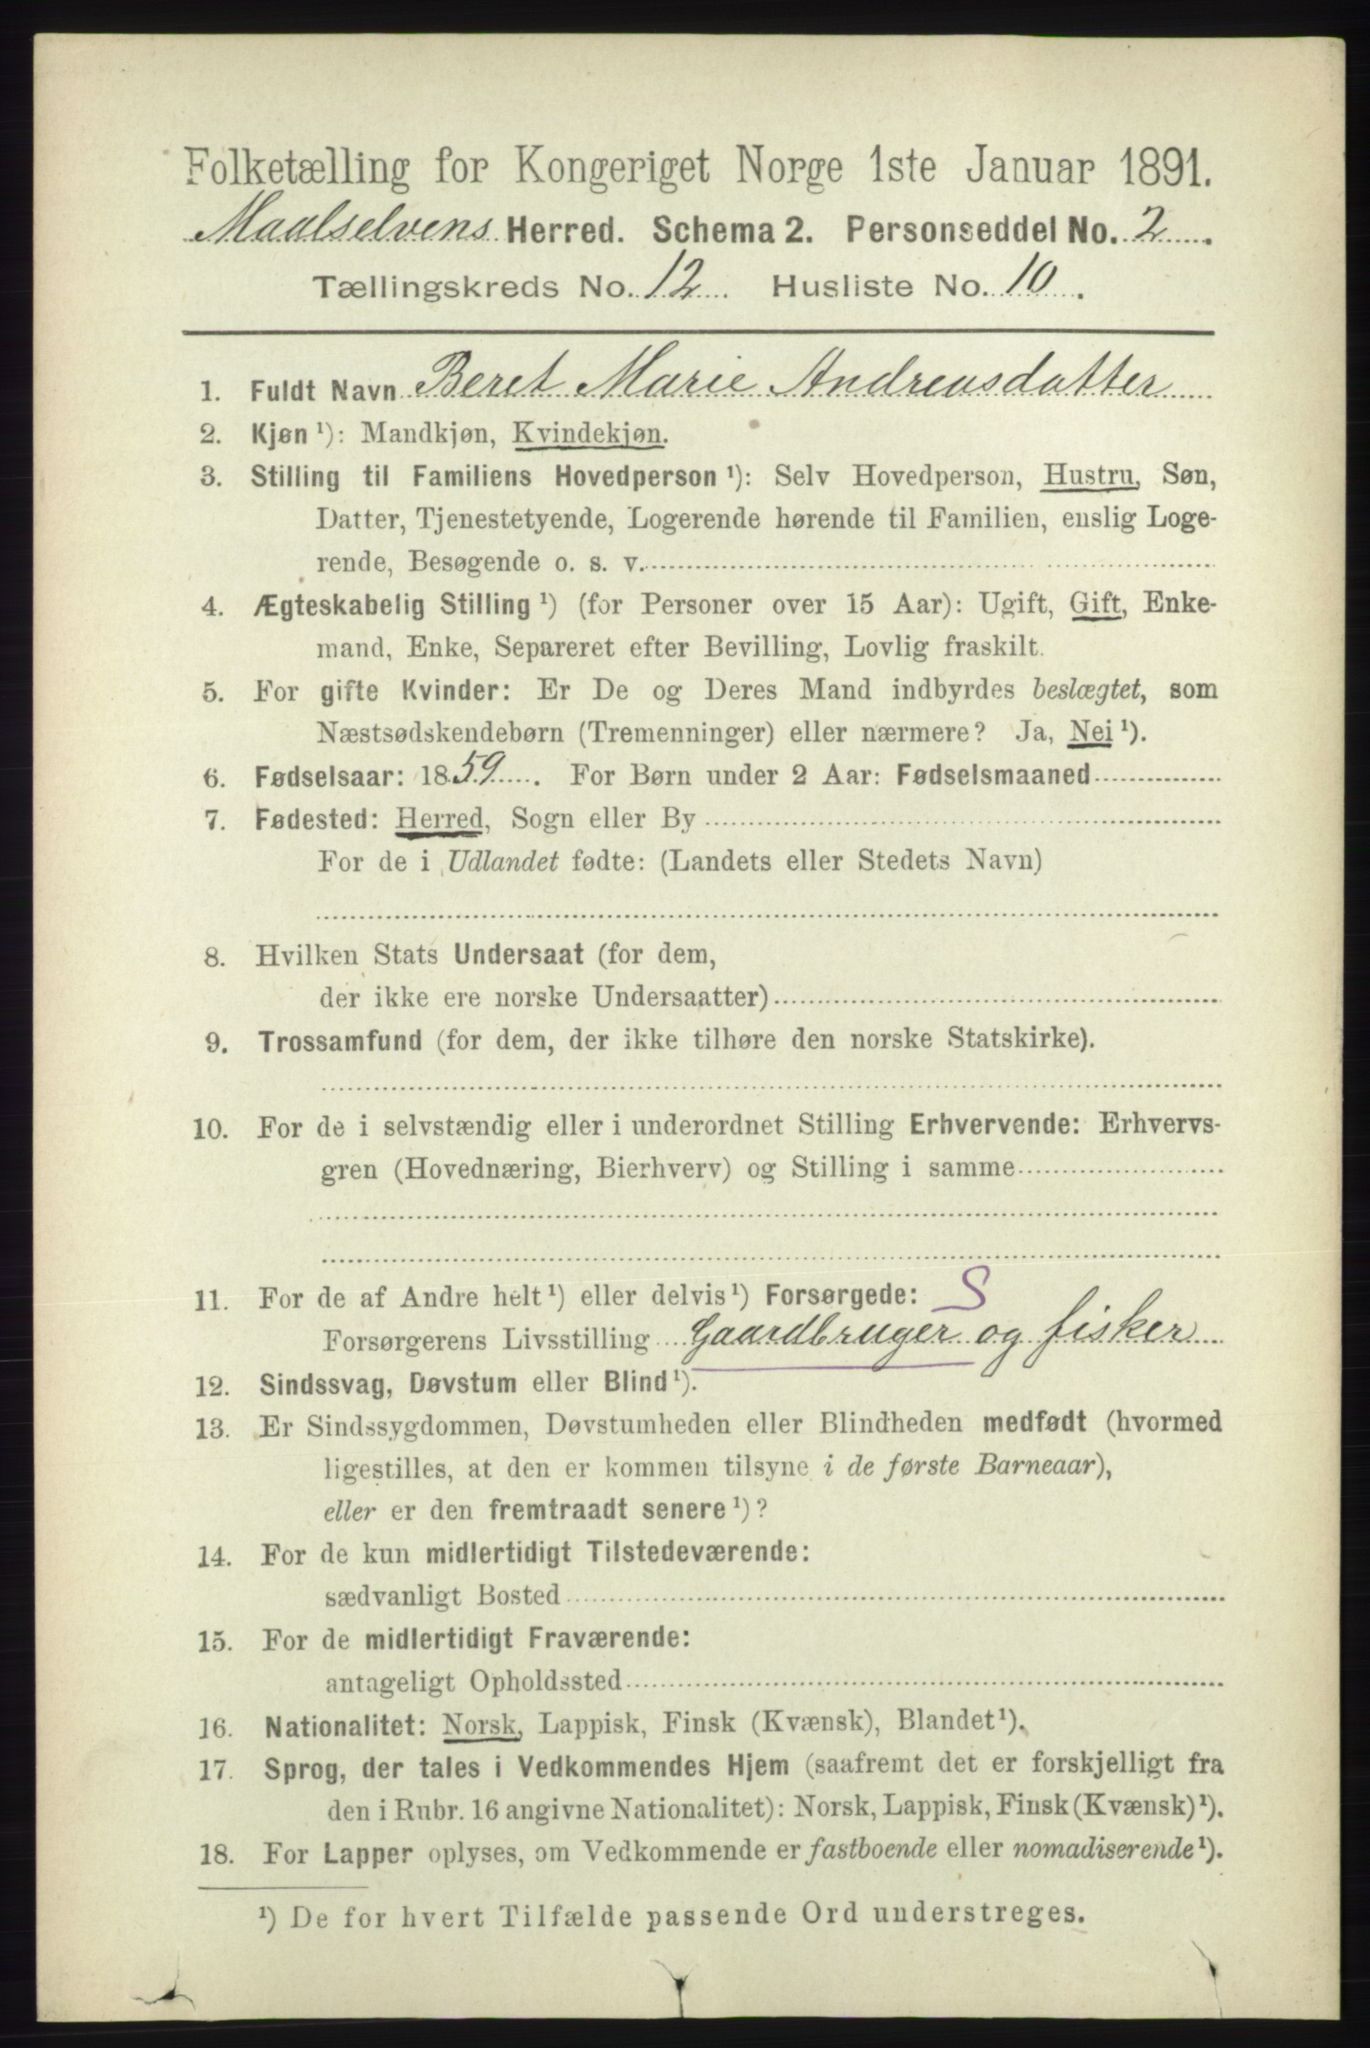 Folketælling for Kongeriget Norge 1ste Januar 1891.
Maalselvens Herred. Schema 2. Personseddel No. 2.
Tællingskreds No. 12 Husliste No. 10.
1. Fuldt Navn Beret Marie Andreasdatter
2. Kjøn ¹): Mandkjøn, Kvindekjøn.
3. Stilling til Familiens Hovedperson ¹): Selv Hovedperson, Hustru, Søn,
Datter, Tjenestetyende, Logerende hørende til Familien, enslig Loge-
rende, Besøgende o. s. v.
4. Ægteskabelig Stilling ¹) (for Personer over 15 Aar): Ugift, Gift, Enke-
mand, Enke, Separeret efter Bevilling, Lovlig fraskilt.
5. For gifte Kvinder: Er De og Deres Mand indbyrdes beslægtet, som
Næstsødskendebørn (Tremenninger) eller nærmere? Ja, Nei ¹).
6. Fødselsaar: 1859. For Børn under 2 Aar: Fødselsmaaned
7. Fødested: Herred, Sogn eller By
For de i Udlandet fødte: (Landets eller Stedets Navn)
8. Hvilken Stats Undersaat (for dem,
der ikke ere norske Undersaatter)
9. Trossamfund (for dem, der ikke tilhøre den norske Statskirke).
10. For de i selvstændig eller i underordnet Stilling Erhvervende: Erhvervs-
gren (Hovednæring, Bierhverv) og Stilling i samme
11. For de af Andre helt ¹) eller delvis ¹) Forsørgede: S
Forsørgerens Livsstilling Gaardbruger og fisker
12. Sindssvag, Døvstum eller Blind ¹).
13. Er Sindssygdommen, Døvstumheden eller Blindheden medfødt (hvormed
ligestilles, at den er kommen tilsyne i de første Barneaar),
eller er den fremtraadt senere ¹)?
14. For de kun midlertidigt Tilstedeværende:
sædvanligt Bosted
15. For de midlertidigt Fraværende:
antageligt Opholdssted
16. Nationalitet: Norsk, Lappisk, Finsk (Kvænsk), Blandet ¹).
17. Sprog, der tales i Vedkommendes Hjem (saafremt det er forskjelligt fra
den i Rubr. 16 angivne Nationalitet): Norsk, Lappisk, Finsk (Kvænsk) ¹).
18. For Lapper oplyses, om Vedkommende er fastboende eller nomadiserende ¹).
¹) De for hvert Tilfælde passende Ord understreges.